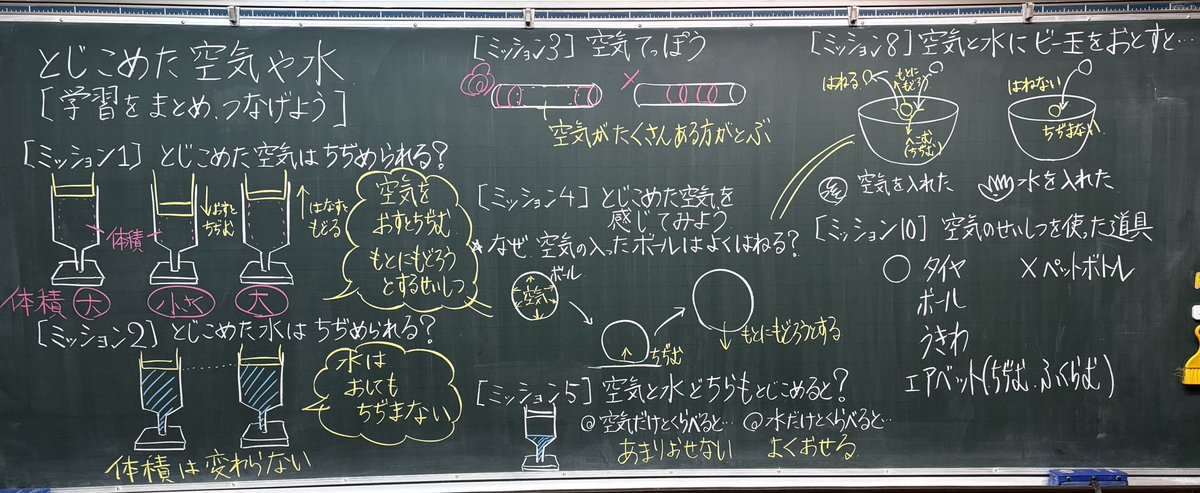 とじこめた空気や水
[学習をまとめ、つなげよう]
[ミッション1] とじこめた空気はちぢめられる?
体積
↓おすと
ちぢむ
↑はなすと
もどる
空気を
おすとちぢむ
もとにもどろう
とするせいしつ
体積 大 小さ 大
[ミッション2] とじこめた水はちぢめられる?
水は
おしても
ちぢまない
体積は変わらない
[ミッション3] 空気てっぽう
×
空気がたくさんある方がとぶ
[ミッション4] とじこめた空気を
感じてみよう
なぜ、空気の入ったボールはよくはねる?
ボール
空気
ちぢむ
もとにもどろうとする
[ミッション5] 空気と水どちらもとじこめると?
@空気だけとくらべると…
あまりおせない
@水だけとくらべると…
よくおせる
[ミッション8] 空気と水にビー玉をおとすと…
はねる
もとに
もどる
へこむ
(ちぢむ)
空気を入れた
はねない
ちぢまない
水を入れた
[ミッション10] 空気のせいしつを使った道具
○ タイヤ
ボール
うきわ
エアベット(ちぢむ、ふくらむ)
×ペットボトル